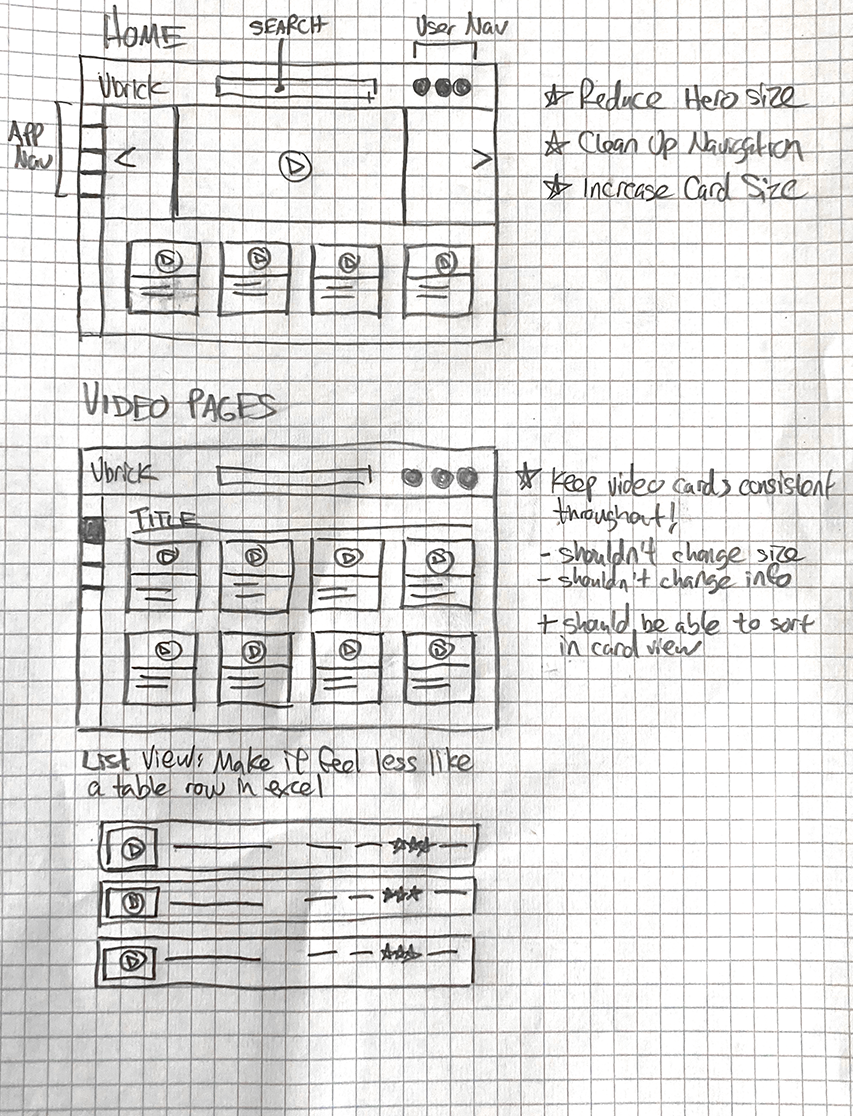 HOME
SEARCH
User Nav
Vbrick
APP
Nav
☆ Reduce Hero size
☆ Clean Up Navigation
☆ Increase Card Size
VIDEO PAGES
Vbrick
TITLE
☆ Keep video cards consistent
throughout!
- shouldn't change size
- shouldn't change info
+ should be able to sort
in card view
List View: Make it feel less like
a table row in excel